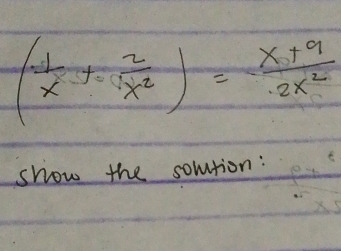 (1/x + 2/x²) = x+9/2x²
show the solution: